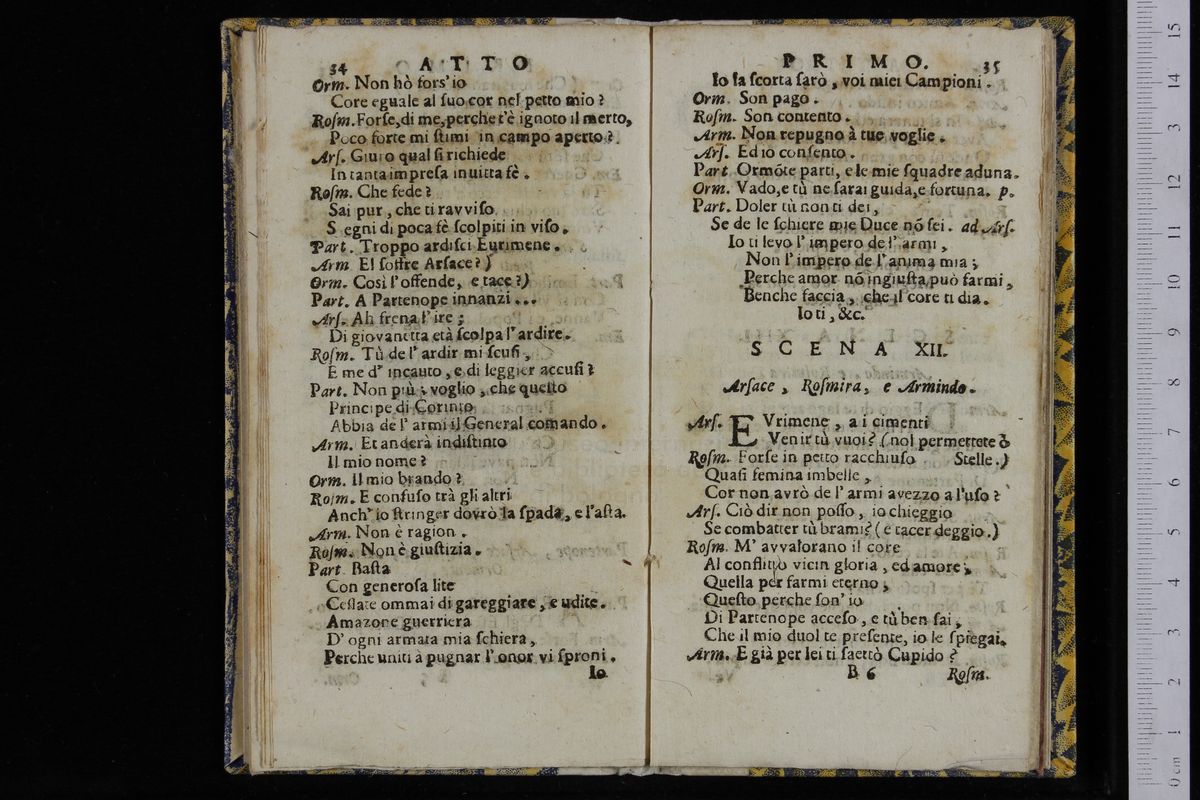 34 ATTO
Orm. Non hò fors' io
Core eguale al ſuo cor nel petto mio ?
Roſm. Forſe, di me, perche t'è ignoto il merto,
Poco forte mi ſtimi in campo aperto ?
Arſ. Giuro qual ſi richiede
In tanta impreſa inuitta fè .
Roſm. Che fede ?
Sai pur , che ti ravviſo
S egni di poca fè ſcolpiti in viſo .
Part. Troppo ardiſci Eurimene .
Arm. E l ſoffre Arſace ? )
Orm. Così l'offende, e tace ? )
Part. A Partenope innanzi ...
Arſ. Ah frena l' ire ;
Di giovanetta età ſcolpa l' ardire .
Roſm. Tù de l' ardir mi ſcuſi ,
E me d' incauto , e di leggier accuſi ?
Part. Non più ; voglio , che queſto
Principe di Corinto
Abbia de l' armi il General comando .
Arm. Et anderà indiſtinto
Il mio nome ?
Orm. Il mio brando ?
Roſm. E confuſo trà gli altri
Anch' io ſtringer dovrò la ſpada , e l'aſta.
Arm. Non è ragion .
Roſm. Non è giuſtizia .
Part. Baſta
Con generoſa lite
Ceſſate ommai di gareggiare , e udite .
Amazone guerriera
D' ogni armata mia ſchiera ,
Perche uniti à pugnar l' onor vi ſproni .
Io
PRIMO. 35
Io la ſcorta ſarò , voi miei Campioni .
Orm. Son pago .
Roſm. Son contento .
Arm. Non repugno à tue voglie .
Arſ. Ed io conſento .
Part. Ormõte parti, e le mie ſquadre aduna .
Orm. Vado, e tù ne ſarai guida, e fortuna. p.
Part. Doler tù non ti dei ,
Se de le ſchiere mie Duce nõ ſei . ad Arſ.
Io ti levo l' impero de l' armi ,
Non l' impero de l' anima mia ;
Perche amor nõ ingiuſta può farmi ,
Benche faccia , che il core ti dia .
Io ti , &c.
SCENA XII.
Arſace , Roſmira , e Armindo .
Arſ. EVrimene , a i cimenti
Venir tù vuoi ? ( nol permettete ò
Roſm. Forſe in petto racchiuſo Stelle . )
Quaſi femina imbelle ,
Cor non avrò de l' armi avezzo a l'uſo ?
Arſ. Ciò dir non poſſo , io chieggio
Se combatter tù brami ? ( e tacer deggio . )
Roſm. M' avvalorano il core
Al conflitto vicin gloria , ed amore ;
Quella per farmi eterno ;
Queſto perche ſon' io
Di Partenope acceſo , e tù ben ſai ,
Che il mio duol te preſente, io le ſpiegai.
Arm. E già per lei ti ſaettò Cupido ?
B 6 Roſm.